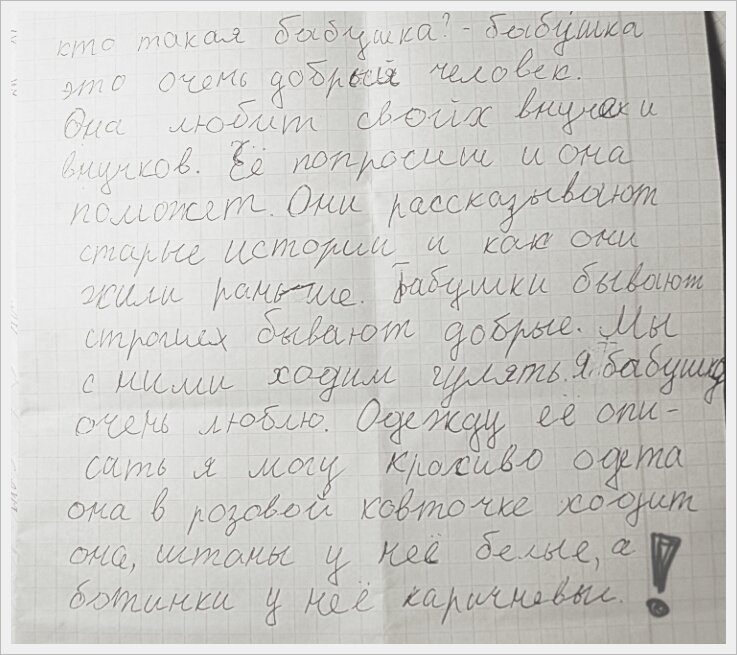 кто такая бабушка? - бабушка
это очень добрый человек.
Она любит своих внучек и
внучков. Её попросиш и она
поможет. Они рассказывают
старые истории и как они
жили раньше. Бабушки бывают
строгиех бывают добрые. Мы
с ними ходим гулять. Я бабушку
очень люблю. Одежду её опи-
сать я могу красиво одета
она в розовой ковточке ходит
она, штаны у неё белые, а
ботинки у неё каричневыи. !